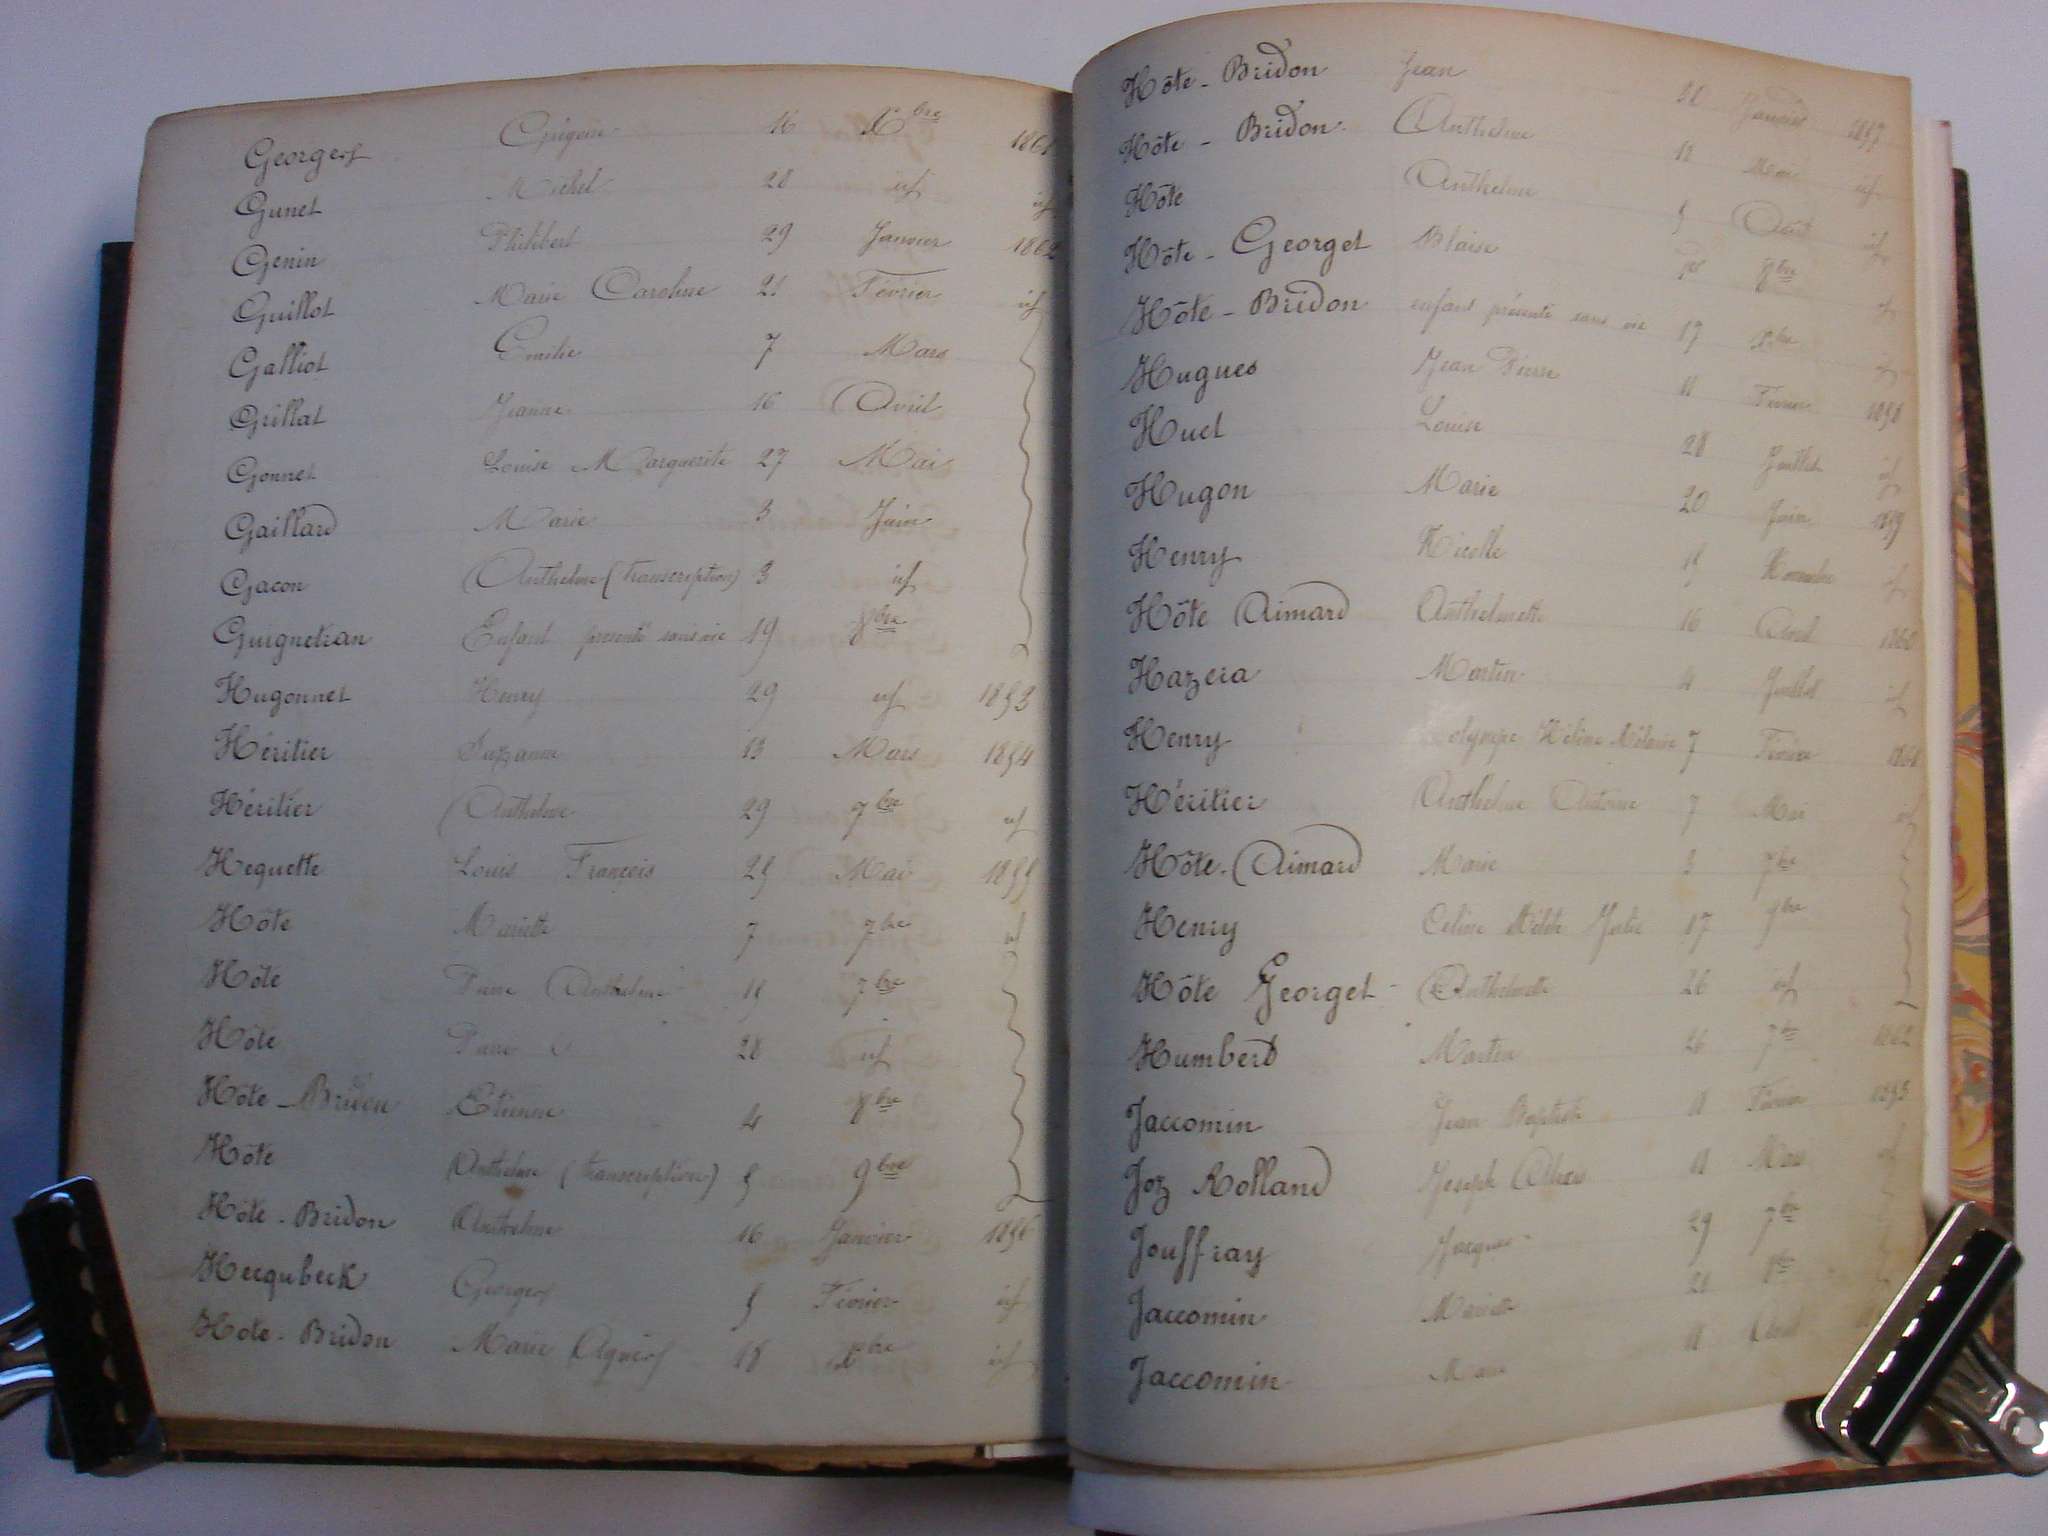 Georges 16 Xbre 1861
Gunet Michel 28 id
Genin Philibert 29 Janvier 1862
Guillot Marie Caroline 21 Février id
Galliot Emilie 7 Mars
Grillat Jeanne 16 Avril
Gonnet Louise Marguerite 27 Mai
Gaillard Marie 3 Juin
Gacon Anthelme (transcription) 3 id
Guignetran Enfant présenté sans vie 19 8bre
Hugonnet Henry 29 id 1853
Héritier Suzanne 13 Mars 1854
Héritier Anthelme 29 7bre id
Hequette Louis François 25 Mai 1855
Hôte Mariette 7 7bre id
Hôte Pierre Anthelme 15 7bre
Hôte Pierre 28 id
Hôte - Bridon Etienne 4 8bre
Hôte Anthelme (transcription) 5 9bre
Hôte - Bridon Anthelme 16 Janvier 1856
Hecqubeck Georges 5 Février id
Hote - Bridon Marie Agnès 18 Xbre id
Hôte - Bridon Jean Janvier 1857
Hôte - Bridon Anthelme 12 Mai id
Hôte Anthelme 5 Août id
Hôte - Georget Blaise 8bre id
Hôte - Bridon enfant présenté sans vie 17 Xbre id
Hugues Jean Pierre 11 Février 1858
Huet Louise 28 Juillet id
Hugon Marie 20 Juin 1859
Henry Nicolle 15 Novembre id
Hôte Aimard Anthelmette 16 Avril 1860
Hazera Martin 4 Juillet id
Henry olympe Hélène Mélanie 7 Février 1861
Héritier Anthelme Antoine 7 Mai id
Hôte - Aimard Marie 3 7bre
Henry Celine Julie 17 9bre
Hôte Georget Anthelmette 26 id
Humbert Martin 26 7bre 1862
Jaccomin Jean Baptiste 11 Février 1853
Joz Rolland Joseph 11 Mars id
Jouffray Jacques 29 7bre
Jaccomin Mariette 21 8bre
Jaccomin Marie 11 Avril